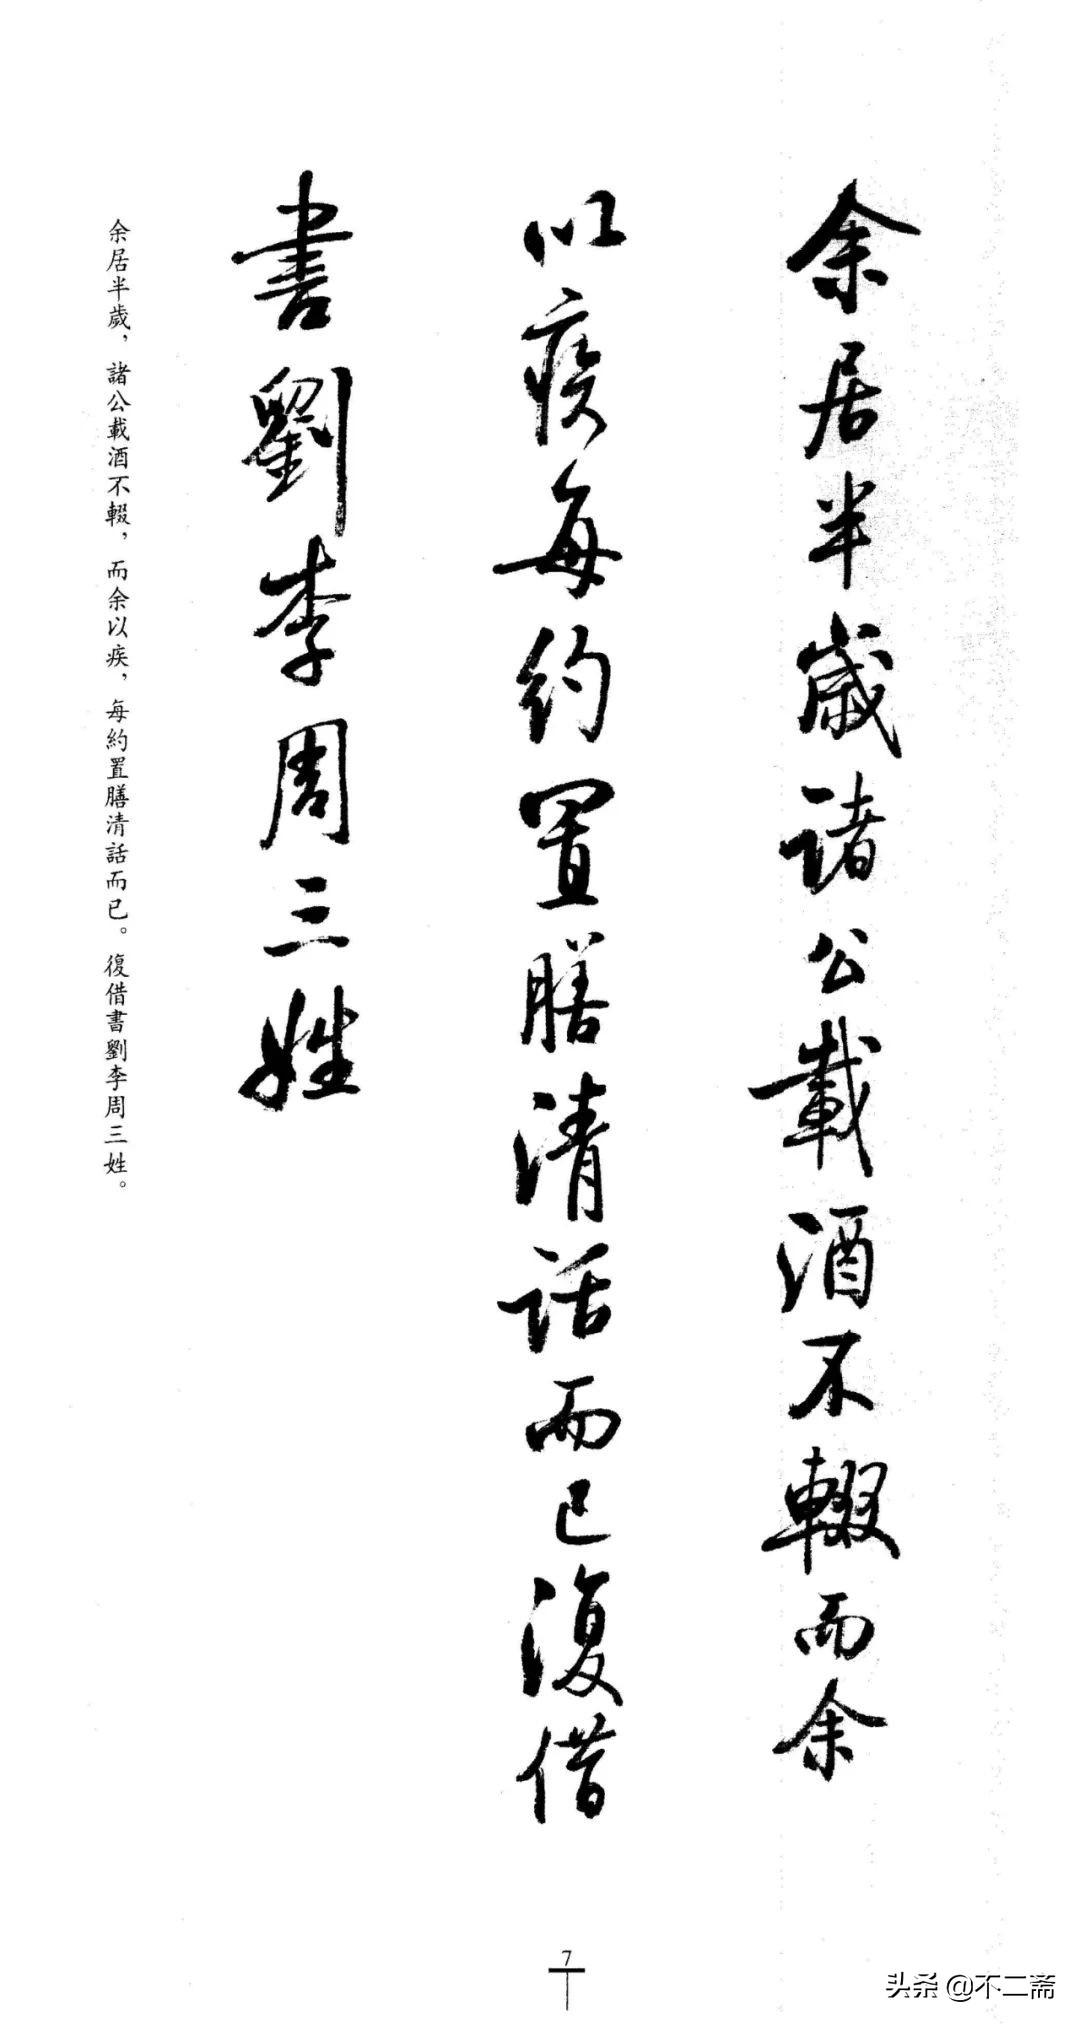 余居半歲諸公載酒不輟而余
以疾每約置膳清話而已復借
書劉李周三姓
余居半歲，諸公載酒不輟，而余以疾，每約置膳清話而已。復借書劉李周三姓。
7
头条 @不二斋